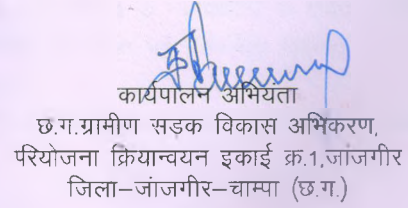 कार्यपालन अभियंता
छ.ग.ग्रामीण सड़क विकास अभिकरण,
परियोजना क्रियान्वयन इकाई क्र.1,जांजगीर
जिला–जांजगीर–चाम्पा (छ.ग.)